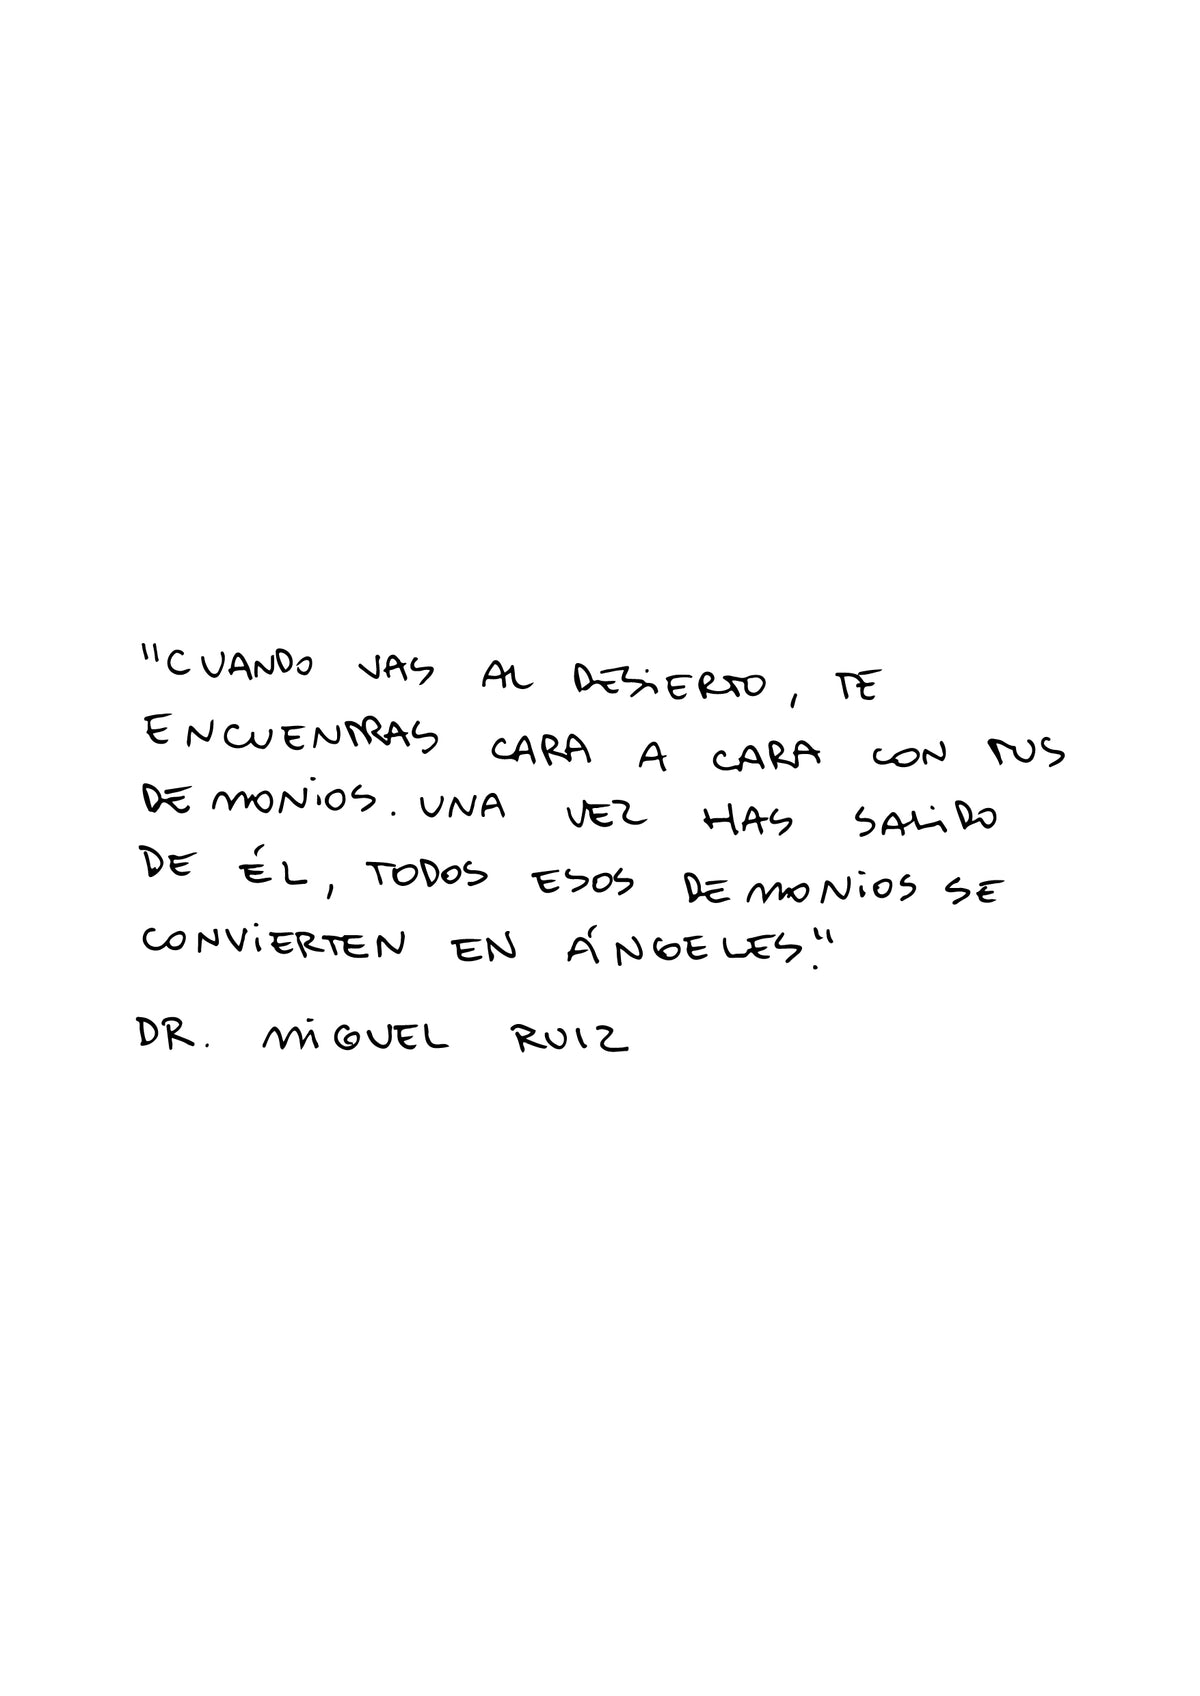 "CUANDO VAS AL DESIERTO, TE
ENCUENTRAS CARA A CARA CON TUS
DEMONIOS. UNA VEZ HAS SALIDO
DE ÉL, TODOS ESOS DEMONIOS SE
CONVIERTEN EN ÁNGELES."
DR. MIGUEL RUIZ